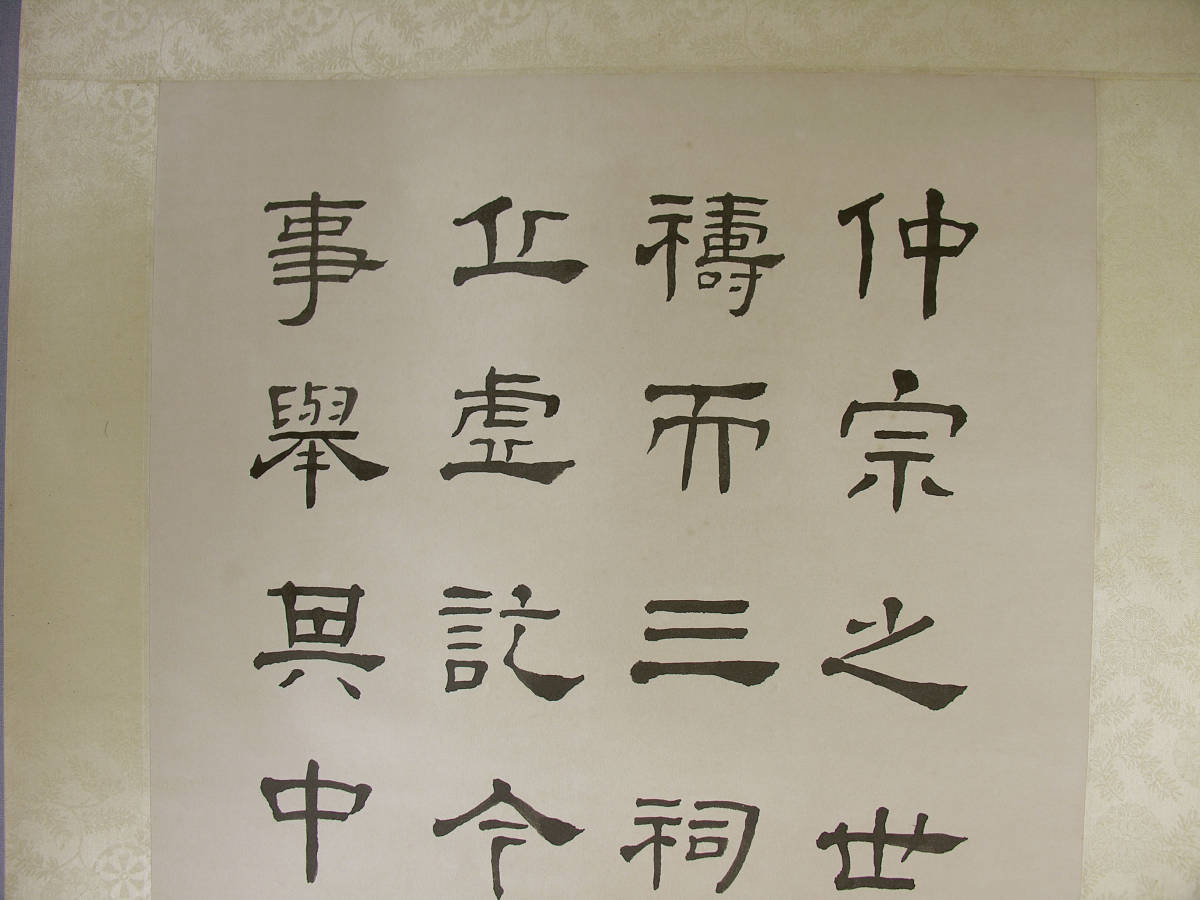 仲宗之世
禱而三祠
丘虛訖今
事舉其中